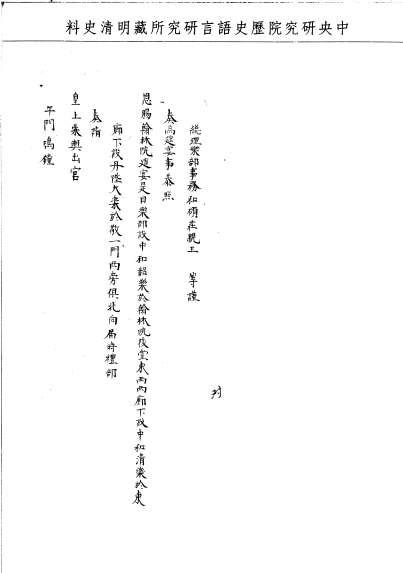 中央研究院歷史語言研究所藏明清史料
總理樂部事務和碩莊親王 等謹
奏為筵宴事恭照
恩賜翰林院筵宴是日樂部設中和韶樂於翰林院後堂東西兩廊下設中和清樂於東
廊下設丹陛大樂於敬一門西旁俱北向屆時禮部
奏請
皇上乘輿出宮
午門鳴鐘